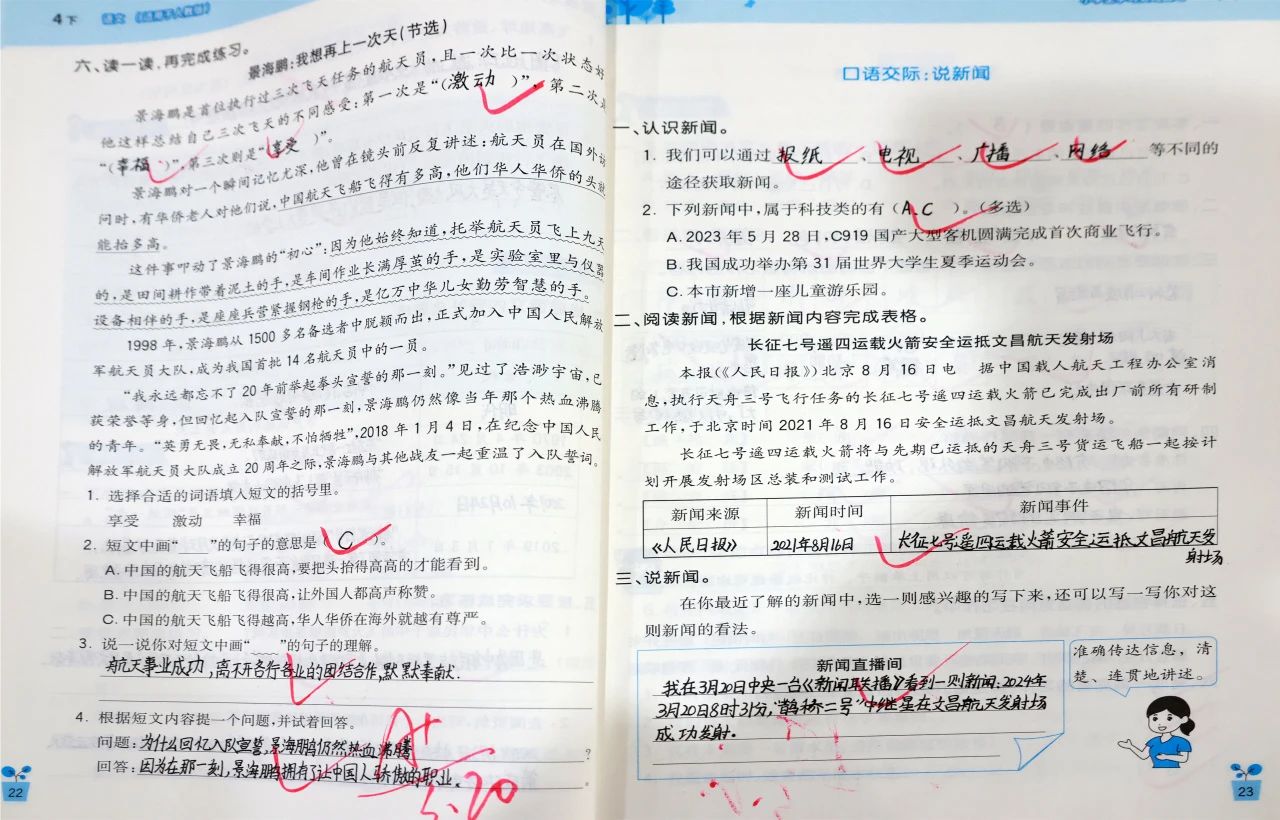 4下 语文 (适用于人教版)
六、读一读,再完成练习。
景海鹏:我想再上一次天(节选)
景海鹏是首位执行过三次飞天任务的航天员,且一次比一次状态好
他这样总结自己三次飞天的不同感受:第一次是“(激动)”,第二次是
“(幸福)”,第三次则是“享受)”。
景海鹏对一个瞬间记忆尤深,他曾在镜头前反复讲述:航天员在国外访
问时,有华侨老人对他们说,中国航天飞船飞得有多高,他们华人华侨的头就
能抬多高。
这件事叩动了景海鹏的“初心”:因为他始终知道,托举航天员飞上九天
的,是田间耕作带着泥土的手,是车间作业长满厚茧的手,是实验室里与仪器
设备相伴的手,是座座兵营紧握钢枪的手,是亿万中华儿女勤劳智慧的手。
1998年,景海鹏从1500多名备选者中脱颖而出,正式加入中国人民解放
军航天员大队,成为我国首批14名航天员中的一员。
“我永远都忘不了20年前举起拳头宣誓的那一刻。”见过了浩渺宇宙,已
获荣誉等身,但回忆起入队宣誓的那一刻,景海鹏仍然像当年那个热血沸腾
的青年。“英勇无畏,无私奉献,不怕牺牲”,2018年1月4日,在纪念中国人民
解放军航天员大队成立20周年之际,景海鹏与其他战友一起重温了入队誓词。
1. 选择合适的词语填入短文的括号里。
享受 激动 幸福
2. 短文中画“ ”的句子的意思是( C )。
A. 中国的航天飞船飞得很高,要把头抬得高高的才能看到。
B. 中国的航天飞船飞得很高,让外国人都高声称赞。
C. 中国的航天飞船飞得越高,华人华侨在海外就越有尊严。
3. 说一说你对短文中画“ ”的句子的理解。
航天事业成功,离不开各行各业的团结合作,默默奉献.
4. 根据短文内容提一个问题,并试着回答。
问题:为什么回忆入队宣誓,景海鹏仍然热血沸腾?
回答:因为在那一刻,景海鹏拥有了让中国人骄傲的职业。
A+
5.20
22
口语交际:说新闻
一、认识新闻。
1. 我们可以通过报纸、电视、广播、网络等不同的
途径获取新闻。
2. 下列新闻中,属于科技类的有(A、C)。(多选)
A. 2023年5月28日,C919国产大型客机圆满完成首次商业飞行。
B. 我国成功举办第31届世界大学生夏季运动会。
C. 本市新增一座儿童游乐园。
二、阅读新闻,根据新闻内容完成表格。
长征七号遥四运载火箭安全运抵文昌航天发射场
本报(《人民日报》)北京8月16日电 据中国载人航天工程办公室消
息,执行天舟三号飞行任务的长征七号遥四运载火箭已完成出厂前所有研制
工作,于北京时间2021年8月16日安全运抵文昌航天发射场。
长征七号遥四运载火箭将与先期已运抵的天舟三号货运飞船一起按计
划开展发射场区总装和测试工作。
新闻来源 新闻时间 新闻事件
《人民日报》 2021年8月16日 长征七号遥四运载火箭安全运抵文昌航天发
射场
三、说新闻。
在你最近了解的新闻中,选一则感兴趣的写下来,还可以写一写你对这
则新闻的看法。
新闻直播间
我在3月20日中央一台《新闻联播》看到一则新闻:2024年
3月20日8时31分,“鹊桥二号”中继星在文昌航天发射场
成功发射.
准确传达信息,清
楚、连贯地讲述。
23